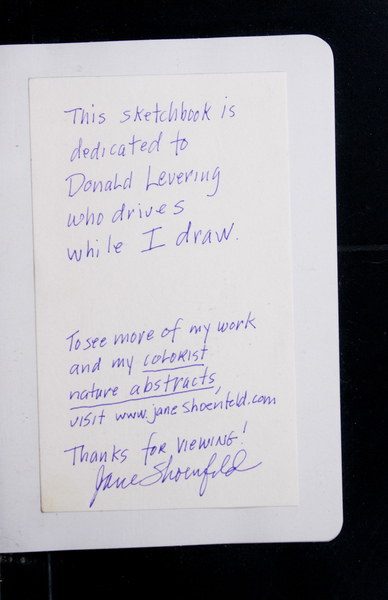 This sketchbook is
dedicated to
Donald Levering
who drives
while I draw.
To see more of my work
and my colorist
nature abstracts,
visit www.janeshoenfeld.com
Thanks for viewing!
Jane Shoenfeld